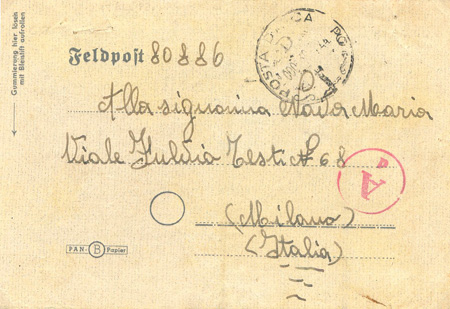 Gummierung hier lösen
mit Bleistift aufrollen
Feldpost 80886
POSTA
Alla signorina Nava Maria
Viale Fulvio Testi N° 68
A
(Milano)
(Italia)
PAN- B Papier